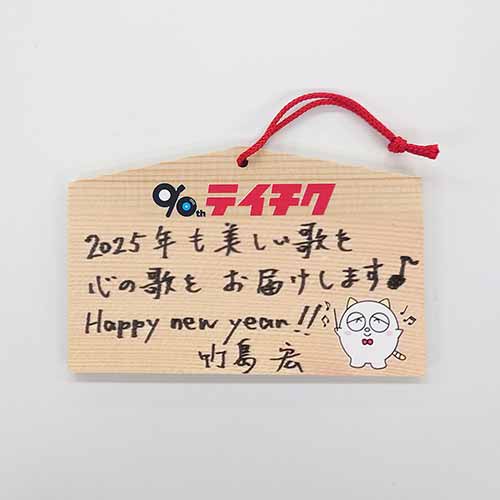 90th テイチク
2025年も美しい歌を
心の歌を お届けします♪
Happy new year!!
竹島 宏